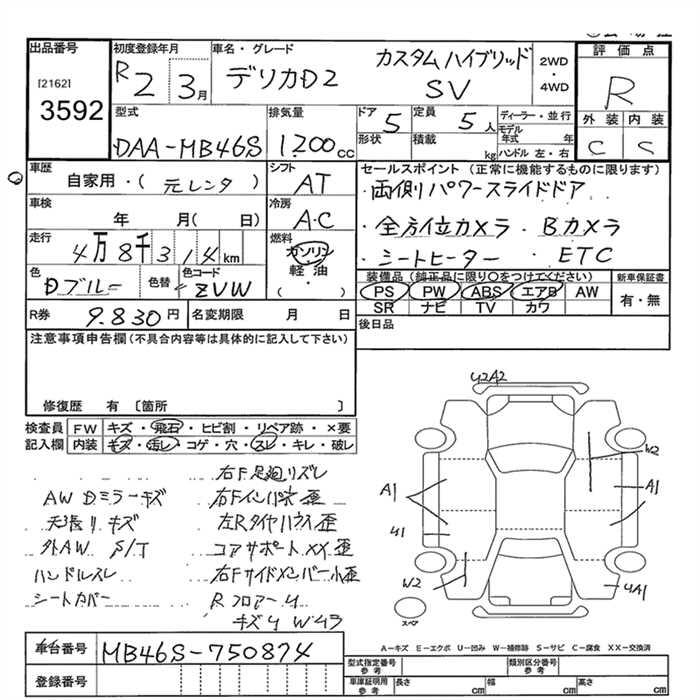 出品番号 初度登録年月 車名・グレード 評価点
[2162] R2 3月 デリカD2 カスタムハイブリッド SV 2WD・4WD R
3592 外装 内装
型式 排気量 ドア 5 定員 5人 ディーラー・並行 C C
DAA-MB46S 1200cc 形状 積載 kg モデル年式 年
ハンドル 左・右
車歴 シフト セールスポイント (正常に機能するものに限ります)
自家用・(元レンタ) AT ・両側パワースライドドア
車検 冷房 ・全方位カメラ・Bカメラ
年 月(日) A・C ・シートヒーター・ETC
走行 4万8千314km 燃料 ガソリン
軽油
( )
色 Dブルー 色替 色コード ZVW 装備品 (純正品に限り○をつけてください) 新車保証書
PS PW ABS エアB AW 有・無
SR ナビ TV カワ
R券 9.830円 名変期限 月 日 後日品
注意事項申告欄 (不具合内容等は具体的に記入して下さい)
修復歴 有 [箇所 ]
検査員 FW キズ・飛石・ヒビ割・リペア跡・×要
記入欄 内装 キズ・汚レ・コゲ・穴・スレ・キレ・破レ
右F足廻リズレ
AW Dミラーキズ 右Fインパネ歪
天張リキズ 左Rタイヤハウス歪
外AW S/T コアサポートXX歪
ハンドルスレ 右Fサイドメンバー小歪
シートカバー RフロアーU
キズU Wムラ
U2A2
W2
A1 A1
U1
W2 U1A1
スペア
A-キズ E-エクボ U-凹み W-補修跡 S-サビ C-腐食 XX-交換済
車台番号 MB46S-750874
登録番号
型式指定番号 参考 類別区分番号 参考
車庫証明用 参考 長さ cm 幅 cm 高さ cm